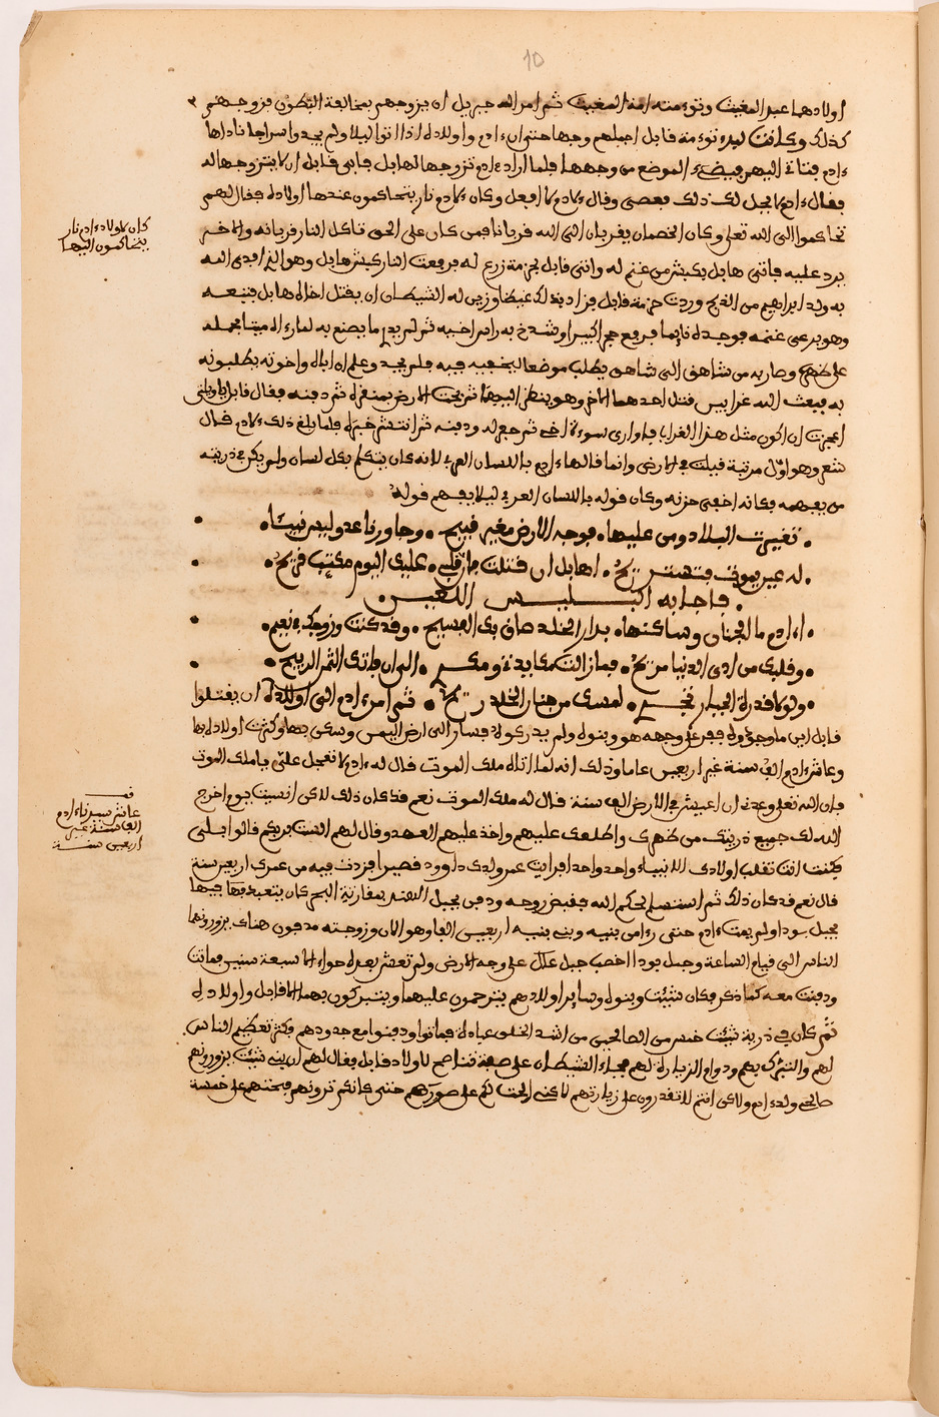 10
اولادهما عبد المغيث وتوءمته امة المغيث ثم امر الله جبريل ان يزوجهم بمخالفة البطون فزوجهم
كذلك وكانت ليدء توءمة قابل اجملهم وجها حتى ان ءادم واولاده اذا اتوا ليلا ولم يجدوا سراجا ناداها
ءادم فتاتي اليهم فيضيء الموضع من وجهها فلما اراد ءادم تزوجها لهابل فابى قابل ان لا يتزوجها له
فقال ءادم لا يحل لك ذلك فعصى وقال لادم لا افعل وكان لادم نار يتحاكمون عندها اولاده فقال لهم
تحاكموا الى الله تعلى وكان الخصمان يقربان الى الله قربانا فمن كان على الحق تاكل النار قربانه والاخر
يرد عليه فاتى هابل بكبش من غنم له واتى قابل بحزمة زرع له فرفعت النار كبش هابل وهو الذي افدى الله
به ولد ابراهيم من الذبح وردت حزمة قابل فزاد بذلك غيضا وزين له الشيطان ان يقتل اخاه هابل فتبعه
وهو يرعى غنمه فوجده نايما فرفع حجرا كبيرا وشدخ به راس اخيه ثم لم يدر ما يصنع به لما رءاه ميتا فحمله
على ظهره وصار به من شاهق الى شاهق يطلب موضعا ليخفيه فيه فلم يجد وعلم ان اباه واخوته يطلبونه
به فبعث الله غرابين قتل احدهما الاخر وهو ينظر اليهما ثم بحث الارض بمنقره ثم دفنه فقال قابل ياويلتى
اعجزت ان اكون مثل هذا الغراب فاواري سوءة اخي ثم حفر له ودفنه ثم انتشر خبره فلما بلغ ذلك لادم قال
شعر وهو اول مرثية قيلت في الارض وانما قالها ءادم باللسان العربي لانه كان يتكلم بكل لسان ولم يكن في ذريته
من يفهمه فكانه اخفى حزنه وكان قوله باللسان العربي ليلا يفهم قوله
تغيرت البلاد ومن عليها • فوجه الارض مغبر قبيح • وجاورنا عدو ليس ننساه
له عين يموت فتستريح • اهابل ان قتلت فان قلبي • عليك اليوم مكتئب قريح
فاجابه ابليس اللعين
اءادم ما الجنان وساكنها • بدار الخلد ضاق بك الفسيح • وقد كنت وزوجك في نعيم
وقلبك من اذى الدنيا مريح • فما زالت مكايدة ومكر • الى ان فاتك الثمن الربيح
ولولا قدرة الجبار نجح • امسى من جنان الخلد ريح • ثم امر ءادم الى اولاده ان يقتلوا
قابل اين ما وجدوه ففر على وجهه هو وبنوه ولم يدركوه فسار الى ارض اليمن وسكن بها وكثرت اولاده بها
وعاش ءادم الف سنة غير اربعين عاما وذلك انه لما اتاه ملك الموت قال له ءادم لا تعجل علي ياملك الموت
فان الله تعلى وعدني ان اعيش في الارض الف سنة قال له ملك الموت نعم قد كان ذلك لاكن انسيت يوم اخرج
الله لك جميع ذريتك من ظهرك واطلعك عليهم واخذ عليهم العهد وقال لهم الست بربكم قالوا بلى
فكنت انت تقلب اولادك الانبياء واحد واحد افرايت عمر ولدك داوود قصيرا فزدت فيه من عمرك اربعين سنة
قال نعم قد كان ذلك ثم استسلم لحكم الله فقبض روحه ودفن بجبل الهند بمغارية البحر كان يتعبد فيها
بجبل بودا ولم يمت ءادم حتى رءا من بنيه وبني بنيه اربعين الفا وهو الان وزوجته مدفون هناك يزورونها
الناس الى قيام الساعة وجبل بودا اخصب جبل على وجه الارض ولم تعش بعده حواء الا سبعة سنين فماتت
ودفنت معه كما ذكر فكان شيث وبنوه وساير اولادهم يترحمون عليهما ويتبركون بهما الا قابل واولاده
ثم كان في ذرية شيث خمس من الصالحين من اشد الخلق عبادة فماتوا ودفنوا مع جدودهم فكثر تعظيم الناس
لهم والتبرك بهم ودوام الزيارة لهم فجاء الشيطان على صفة ناصح لاولاد قابل فقال لهم ان بني شيث يزورونهم
صالحي ولد ءادم ولاكن انتم لا تقدرون على زيارتهم لاكني انحت لكم على صورهم حتى كانكم ترونهم فنحتهم على خمسة
كان لاولاد ءادم نار
يتحاكمون اليها
قف
عاش سيدنا ءادم
الف سنة غير
اربعين سنة